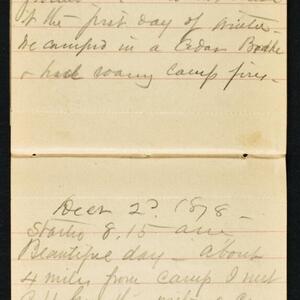 of the first day of winter
We camped in a Cedar Brake
& had roaring camp fires -
Decr 2d. 1878 -
Starts 8.15 am
Beautiful day - about
4 miles from camp I met